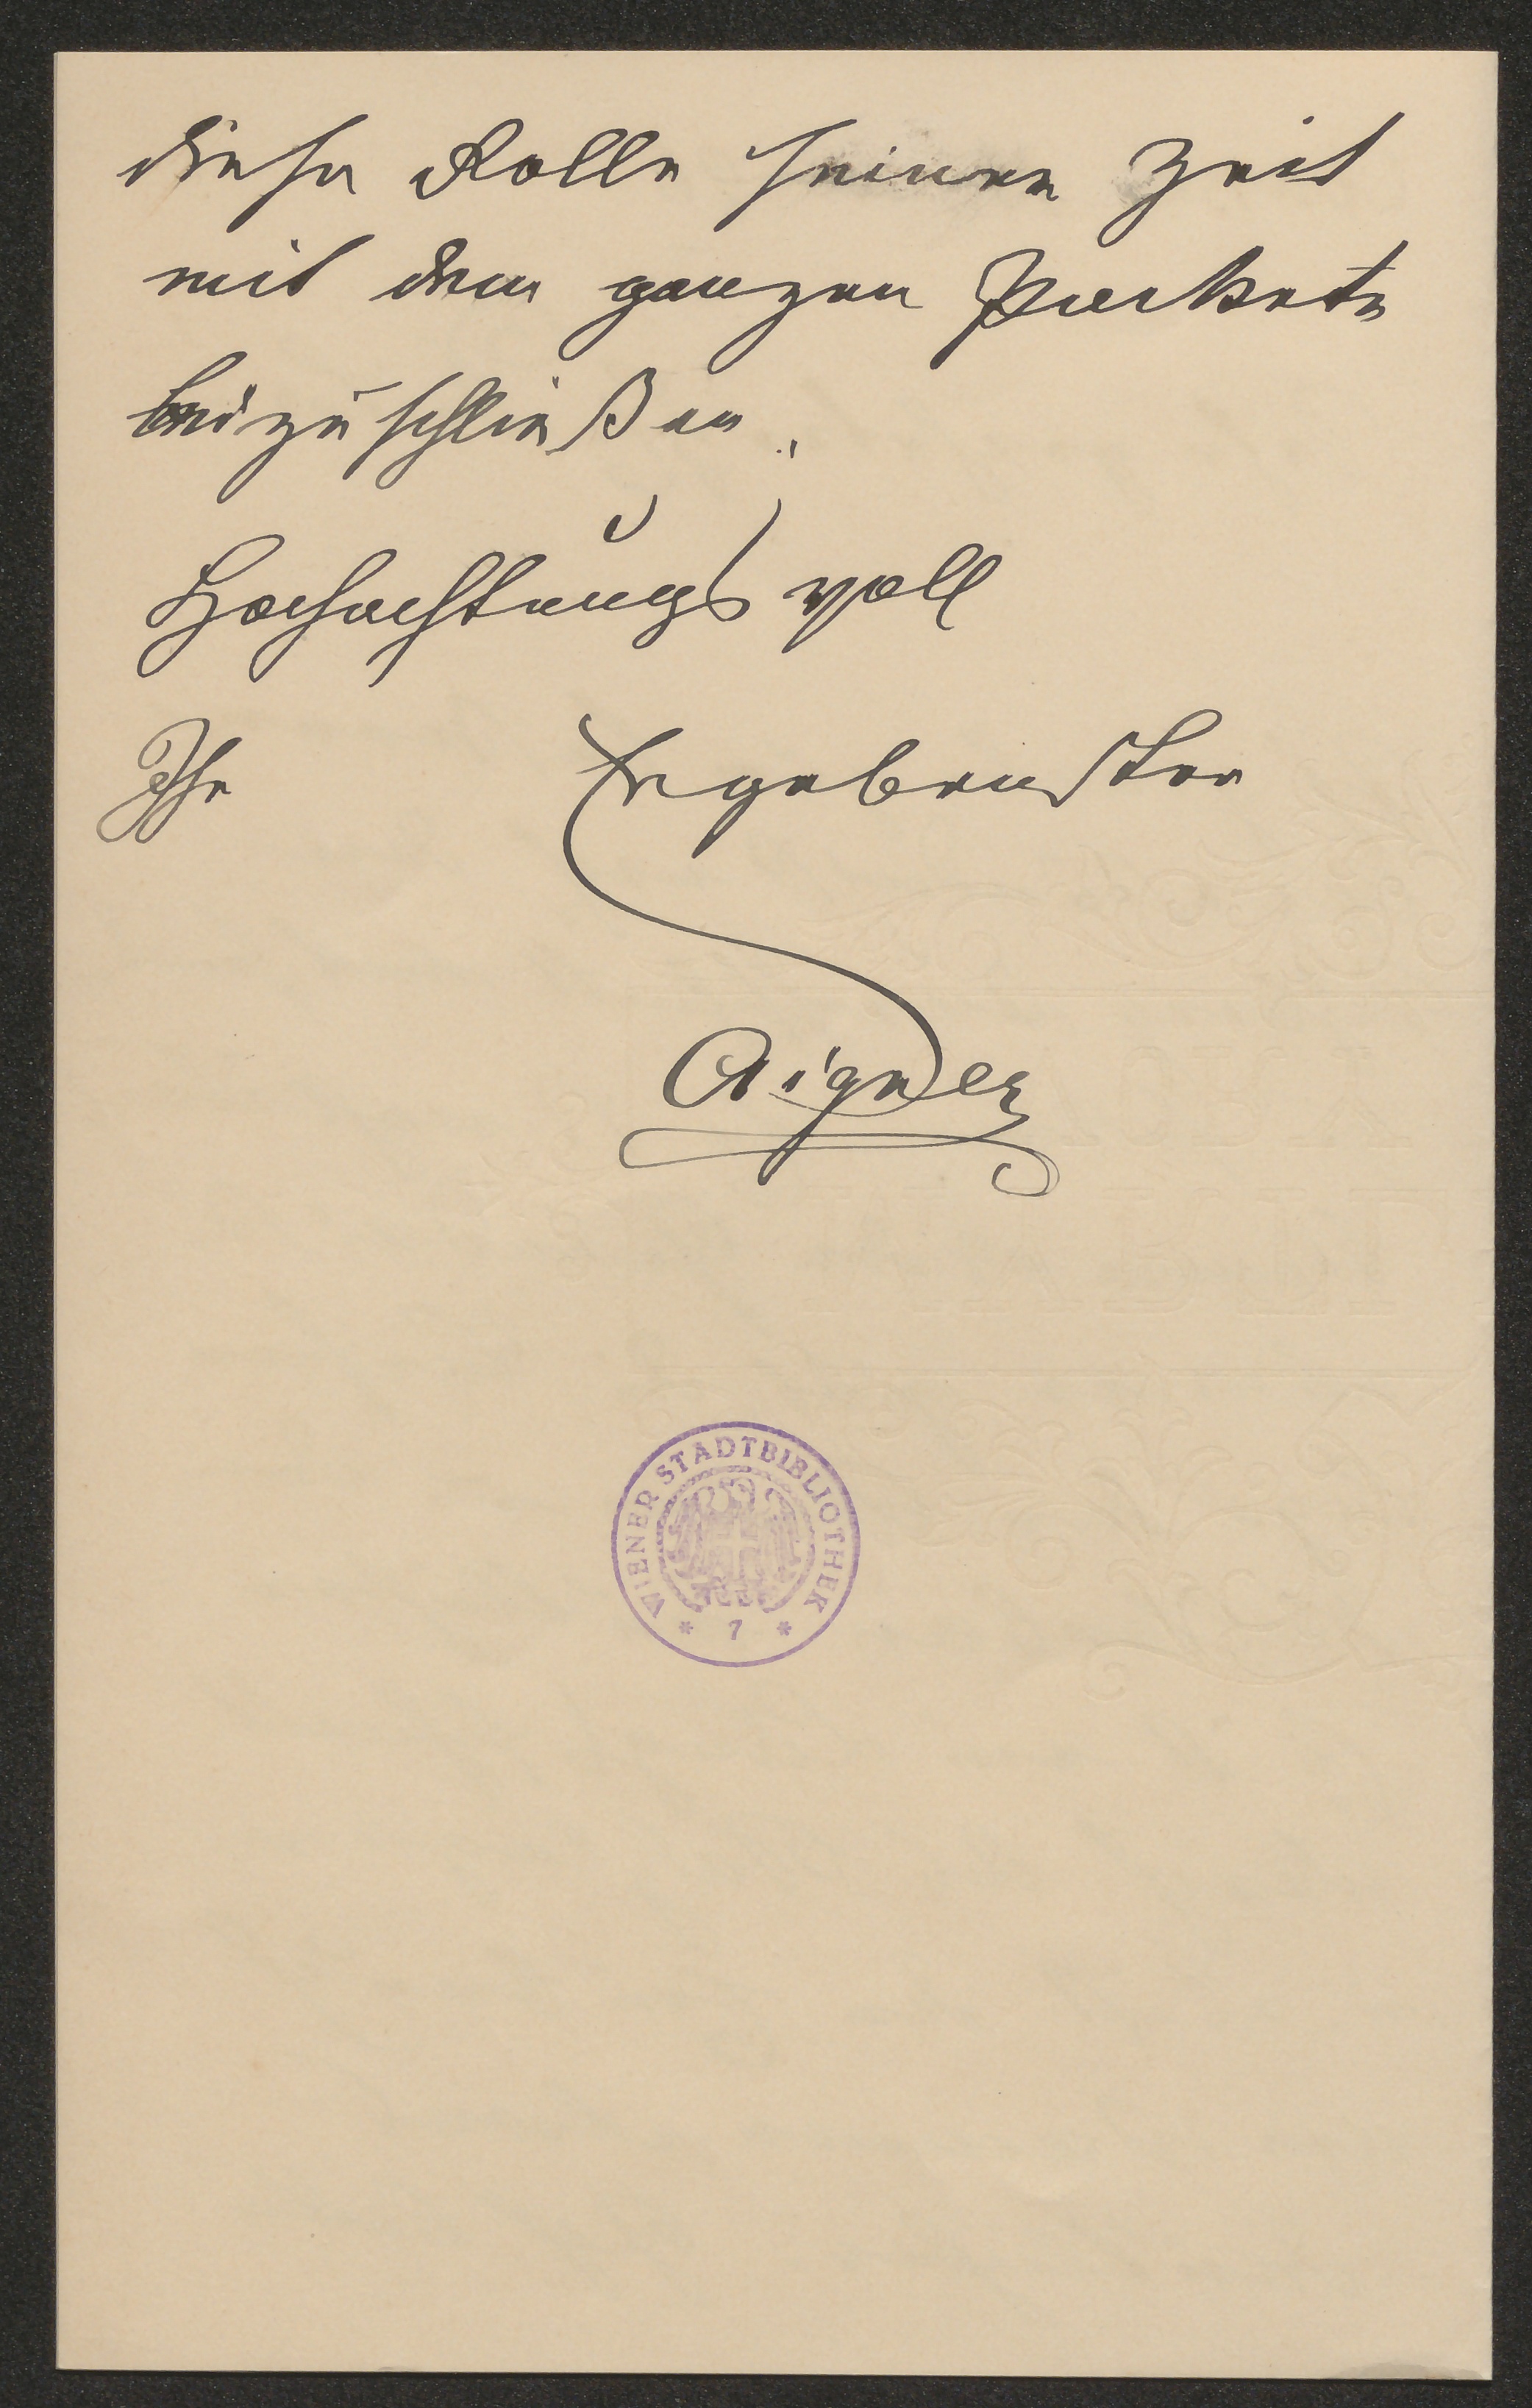 diese Rolle seiner Zeit
mit dem ganzen Packete
beizuschließen.
Hochachtungsvoll
Ihr Ergebenster
Aigner
WIENER STADTBIBLIOTHEK
* 7 *